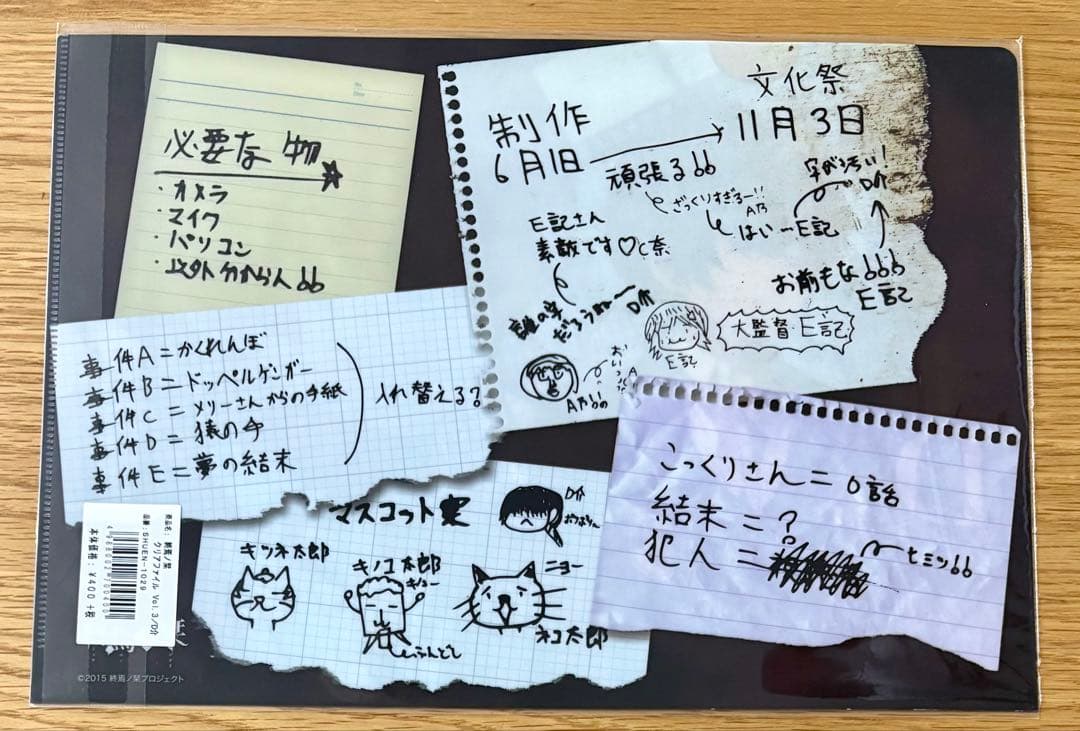 必要な物
・カメラ
・マイク
・パソコン
・以外分からん
文化祭
制作
6月1日
11月3日
頑張る
ざっくりすぎるー!!
A乃
はいーE記
字が汚い!
D介
お前もな
E記
E記さん
素敵です♡C奈
誰の字
だろうねー
D介
E記
大監督・E記
A乃
事件A=かくれんぼ
事件B=ドッペルゲンガー
事件C=メリーさんからの手紙
事件D=猿の手
事件E=夢の結末
入れ替える?
こっくりさん=0話
結末=?
犯人=
ヒミツ
マスコット案
D介
キツネ太郎
キノコ太郎
ニョー
ふんどし
ネコ太郎
商品名:終焉ノ栞
クリアファイル Vol.3/D介
品番:SHUEN-1029
本体価格:¥400+税
©2015 終焉ノ栞プロジェクト